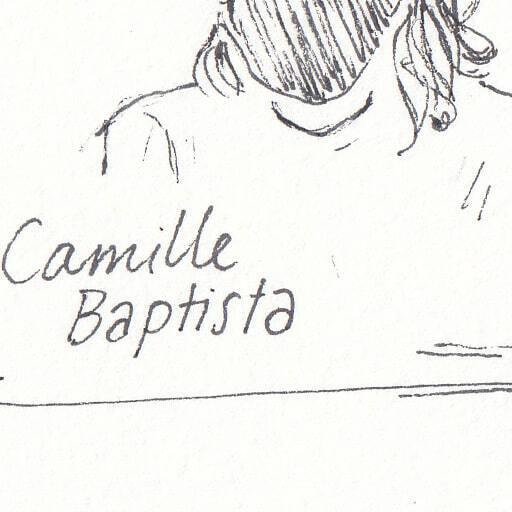 Camille
Baptista